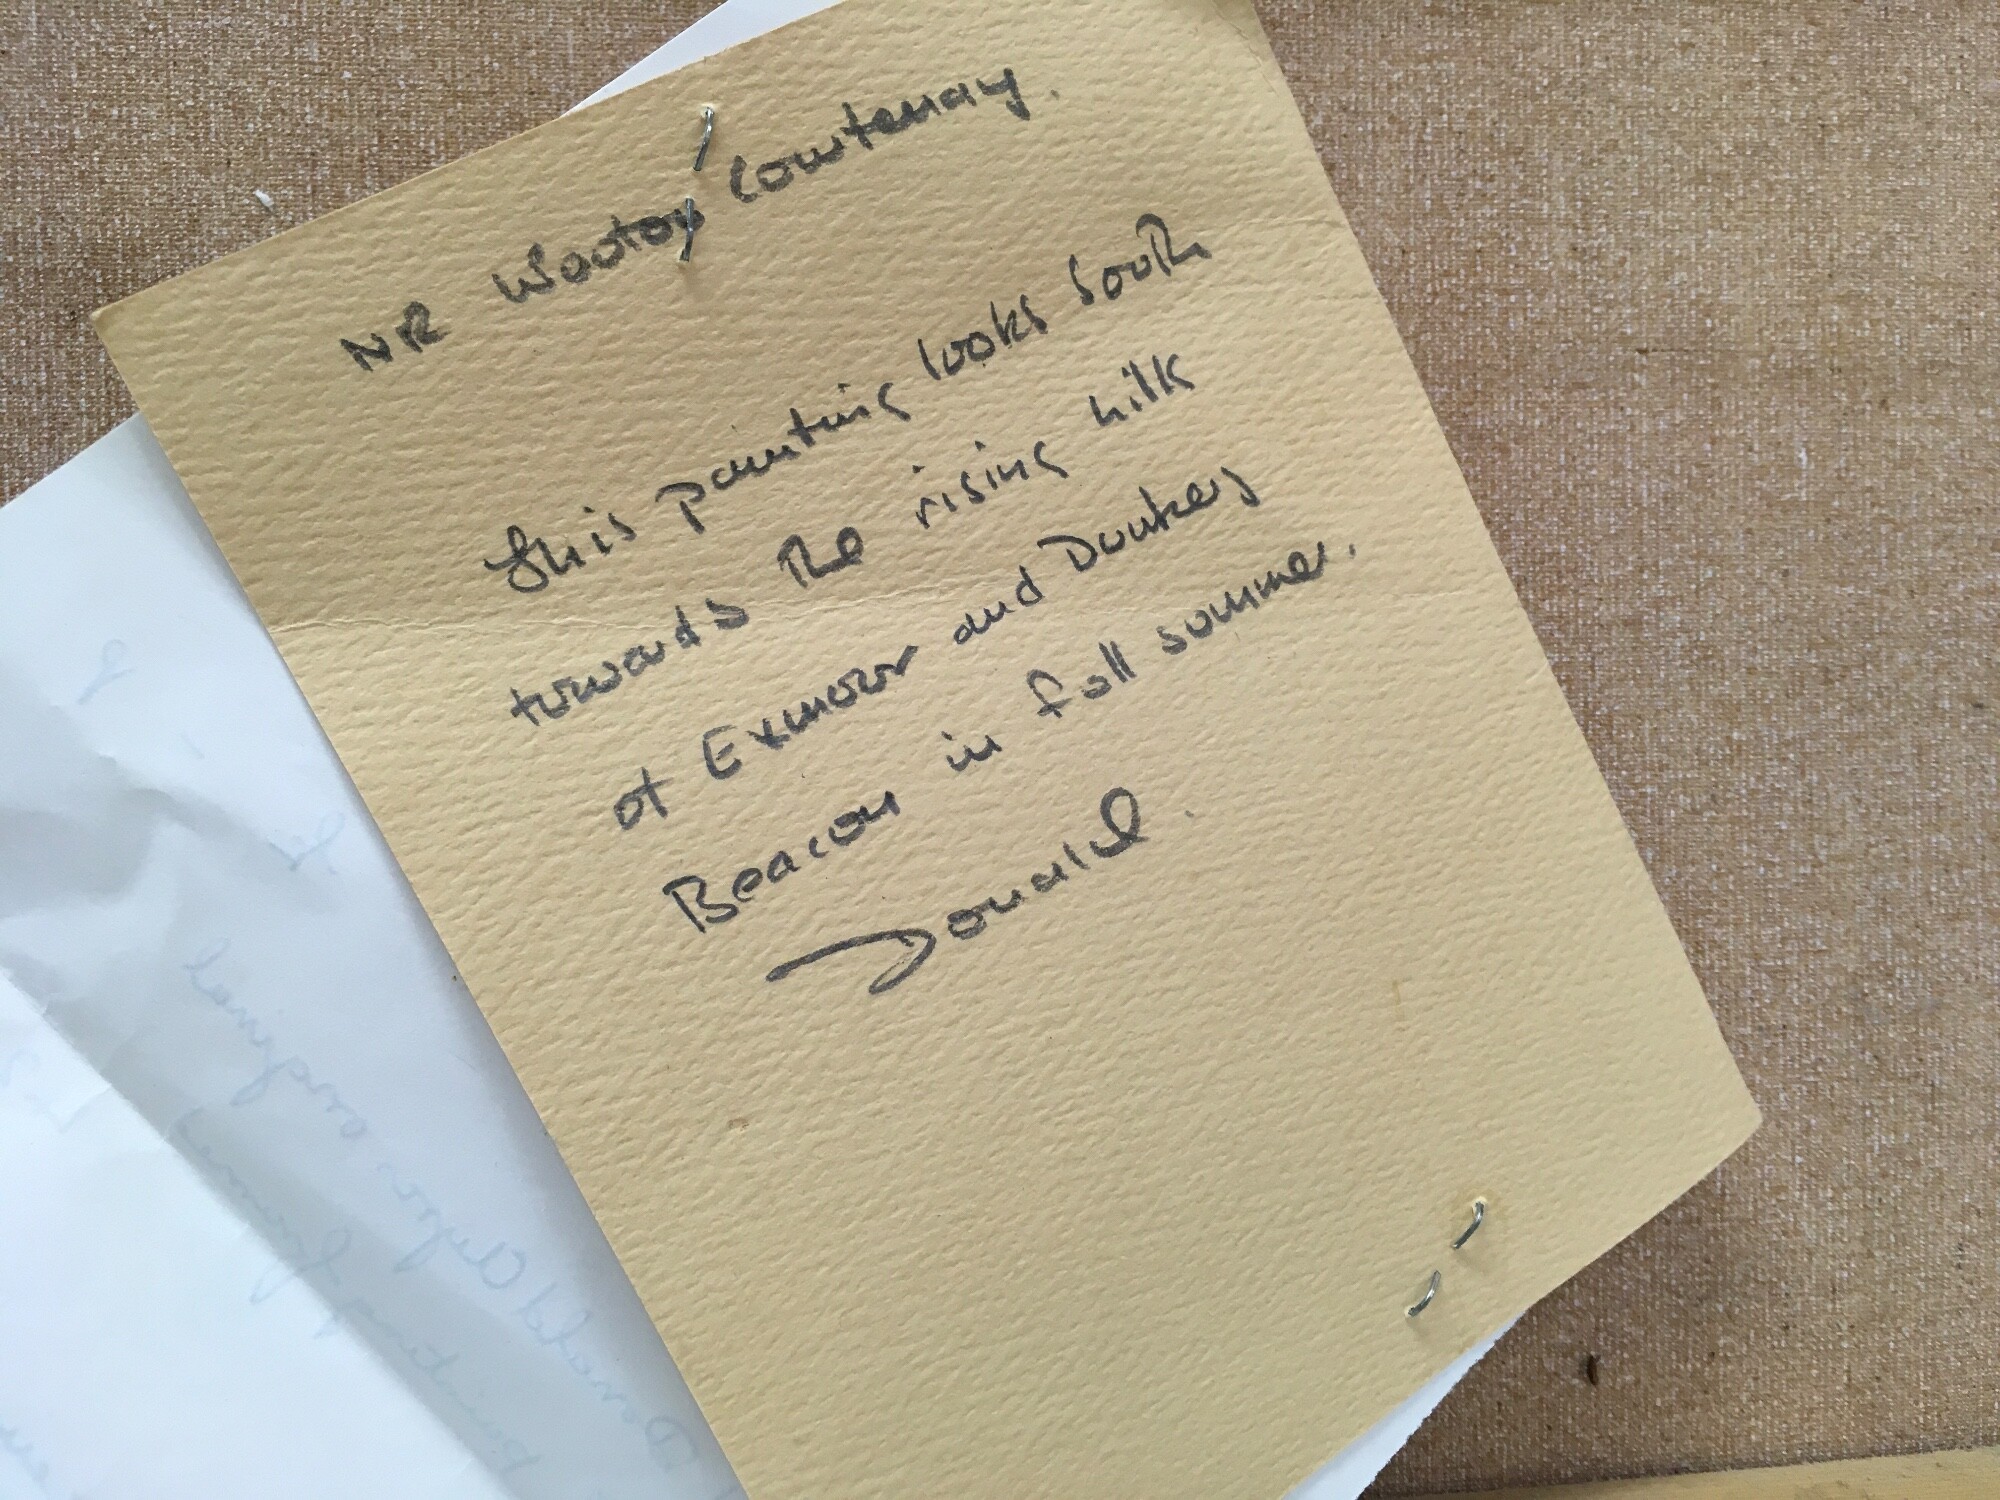 NR Wooton Courtenay.
This painting looks South
towards the rising hills
of Exmoor and Dunkery
Beacon in full summer.
Donald.
Donald Ayres original
painting framed